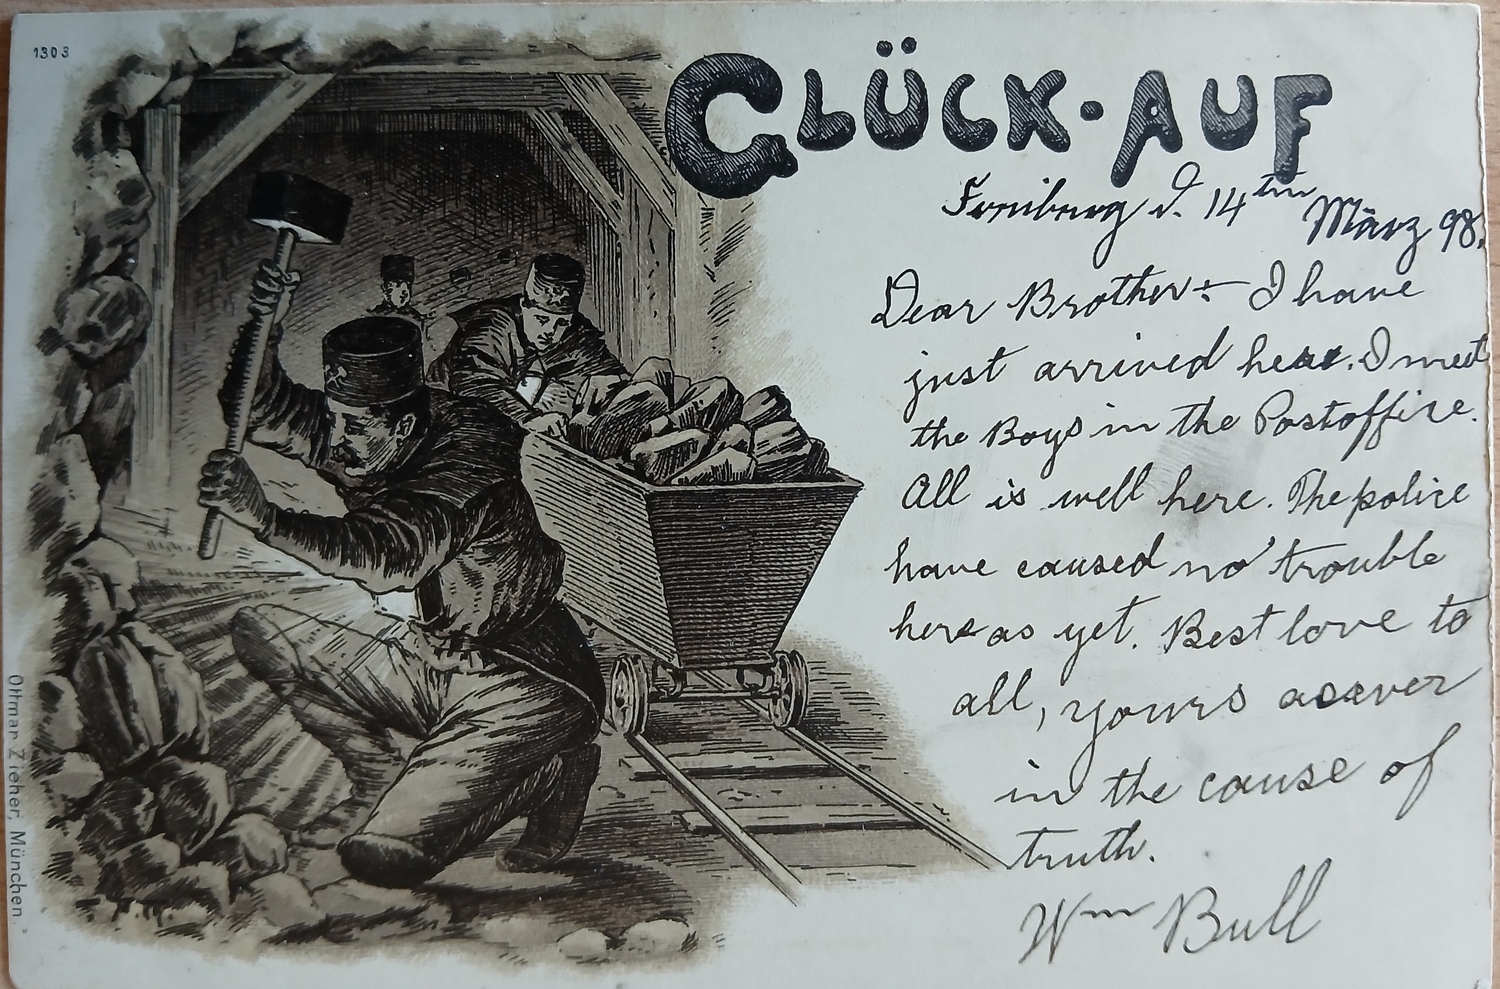 1303
GLÜCK-AUF
Freiburg d. 14ten März 98.
Dear Brother:- I have
just arrived here. I meet
the Boys in the Postoffice.
All is well here. The police
have caused no trouble
here as yet. Best love to
all, yours as ever
in the cause of
truth.
Wm Bull
Ottmar Zieher, München.